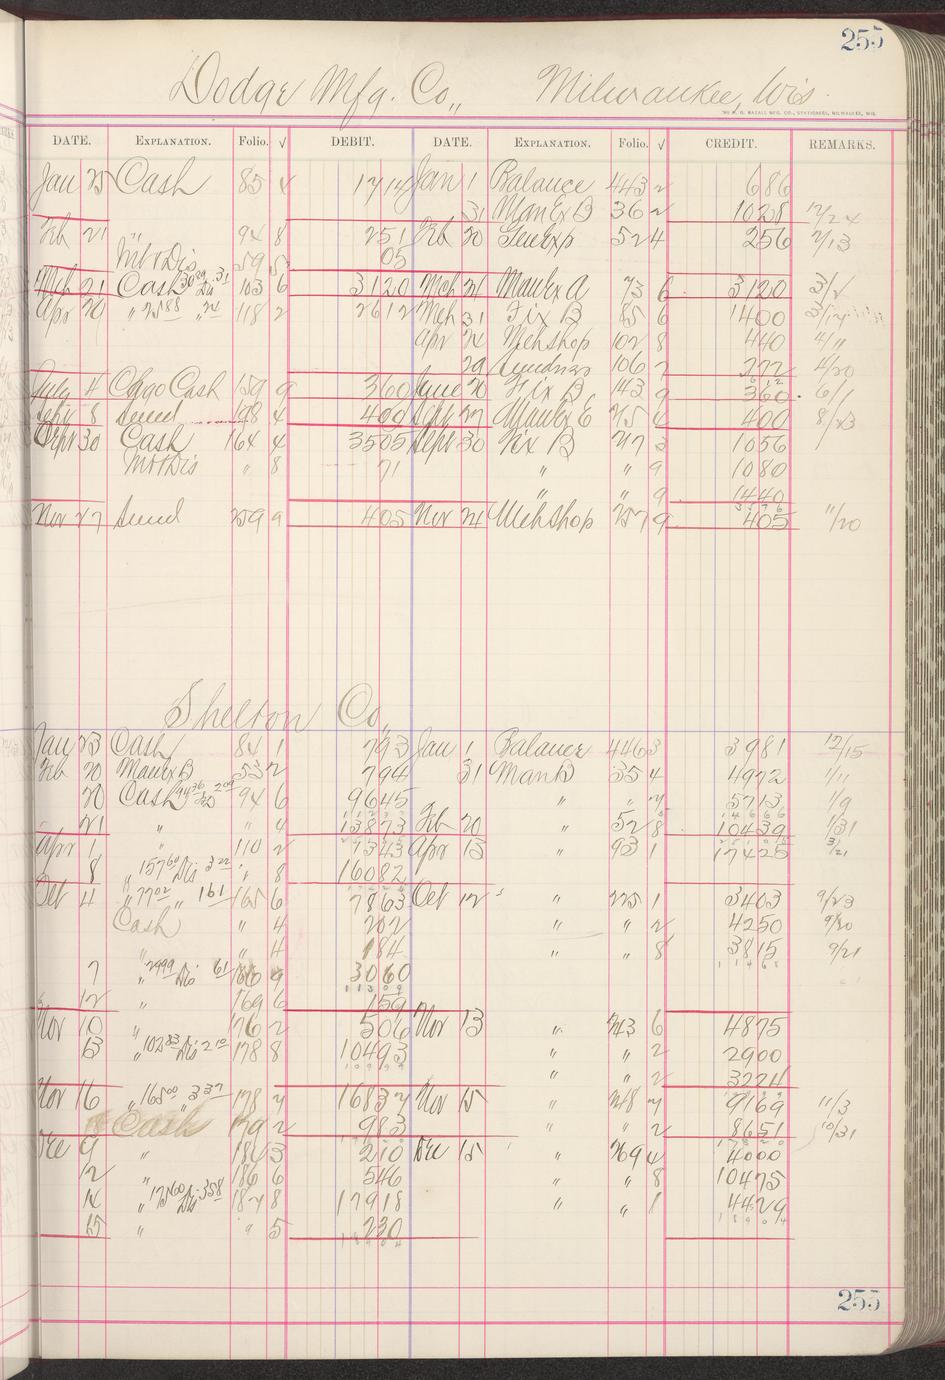 255
Dodge Mfg. Co., Milwaukee, Wis.
DATE. EXPLANATION. Folio. √ DEBIT. DATE. EXPLANATION. Folio. √ CREDIT. REMARKS.
Jan 25 Cash 85 4 1714 Jan 1 Balance 443 2 686
31 Man Ex B 36 2 1028 12/24
Feb 21 " 94 8 251 Feb 20 Gen Exp 52 4 256 2/13
Int & Dis 59 5 05
Mch 21 Cash 103 6 3120 Mch 21 Man Ex A 73 6 3120
Apr 20 " 118 2 2612 Mch 31 Fix B 85 6 1400
Apr 24 Mch Shop 102 8 440 4/11
29 Sundries 106 2 772 4/20
July 4 Chgo Cash 159 9 360 June 20 Fix B 143 9 360 6/1
Sept 8 Sund 198 4 400 Sept 27 Man Ex E 215 4 400 8/23
Sept 30 Cash 164 4 3505 Sept 30 Fix B 217 3 1056
Int & Dis " 8 71 " " 9 1080
" " 9 1440
Nov 27 Sund 259 9 405 Nov 21 Mch Shop 257 9 405 11/20
Shelton Co.
Jan 23 Cash 84 1 793 Jan 1 Balance 446 3 3981 12/15
Feb 20 Man Ex B 53 2 794 31 Man B 35 4 4972 1/11
20 Cash 94 6 9645 " " 7 5713 1/9
21 " " 4 13873 Feb 20 " 52 8 10439 1/31
Apr 1 " 110 2 1343 Apr 13 " 93 1 17425 3/21
8 " 157 60 Dis 3 22 " 8 16082
Oct 4 " 77 02 " 1 61 165 6 7863 Oct 12 " 225 1 3403 9/23
Cash " 4 202 " " 2 4250 9/20
" " 4 184 " " 8 3815 9/21
7 " 29 99 Dis 61 166 9 3060
12 " 169 6 159
Nov 10 " 176 2 506 Nov 13 " 243 6 4875
13 " 102 83 Dis 2 10 178 8 10493 " " 2 2900
" " 2 3224
Nov 16 " 165 00 " 3 37 178 7 16837 Nov 15 " 248 7 9169 11/3
Cash 179 2 983 " " 2 8651 10/31
Dec 9 " 186 3 210 Dec 15 " 269 4 4000
12 " 186 6 546 " " 8 10475
14 " 175 60 Dis 3 58 187 8 17918 " " 1 4429
15 " " 5 230
255